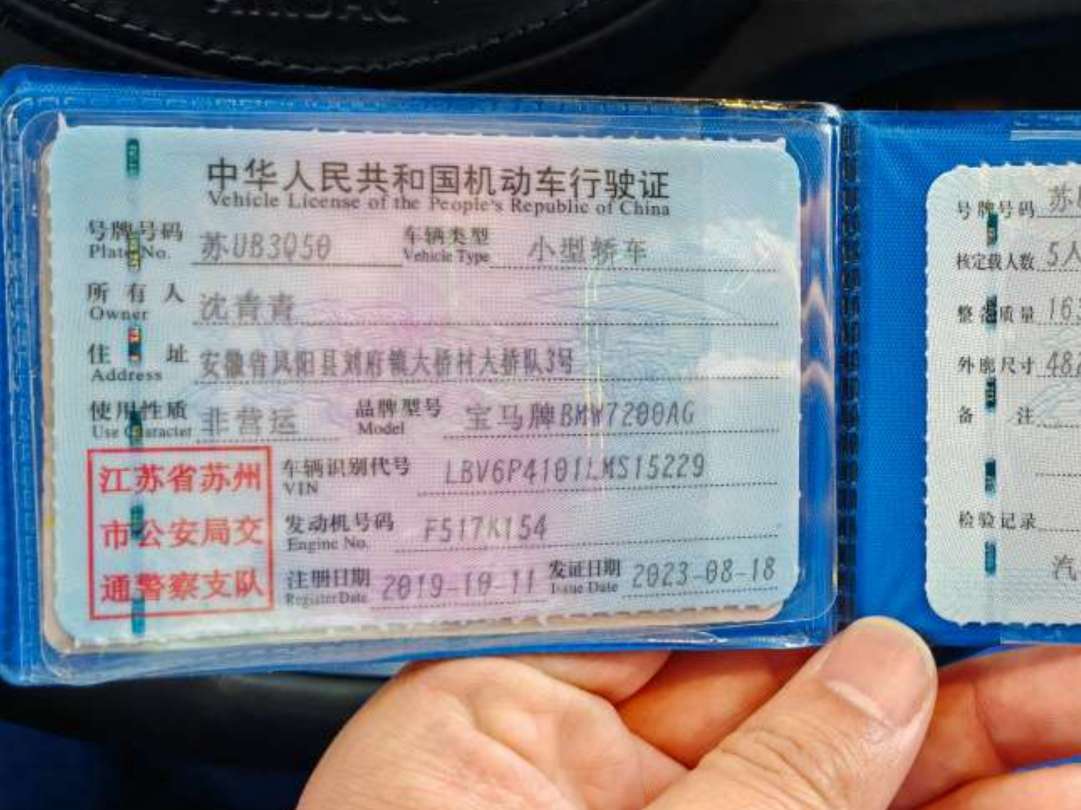 AIRBAG
中华人民共和国机动车行驶证
Vehicle License of the People's Republic of China
号牌号码 苏UB3Q50 车辆类型 小型轿车
Plate No. Vehicle Type
所有人 沈青青
Owner
住址 安徽省凤阳县刘府镇大桥村大桥队3号
Address
使用性质 非营运 品牌型号 宝马牌BMW7200AG
Use Character Model
江苏省苏州
市公安局交
通警察支队
车辆识别代号 LBV6P4101LMS15229
VIN
发动机号码 F517K154
Engine No.
注册日期 2019-10-11 发证日期 2023-08-18
Register Date Issue Date
号牌号码 苏
核定载人数 5人
整备质量 16
外廓尺寸 48
备注
检验记录
汽